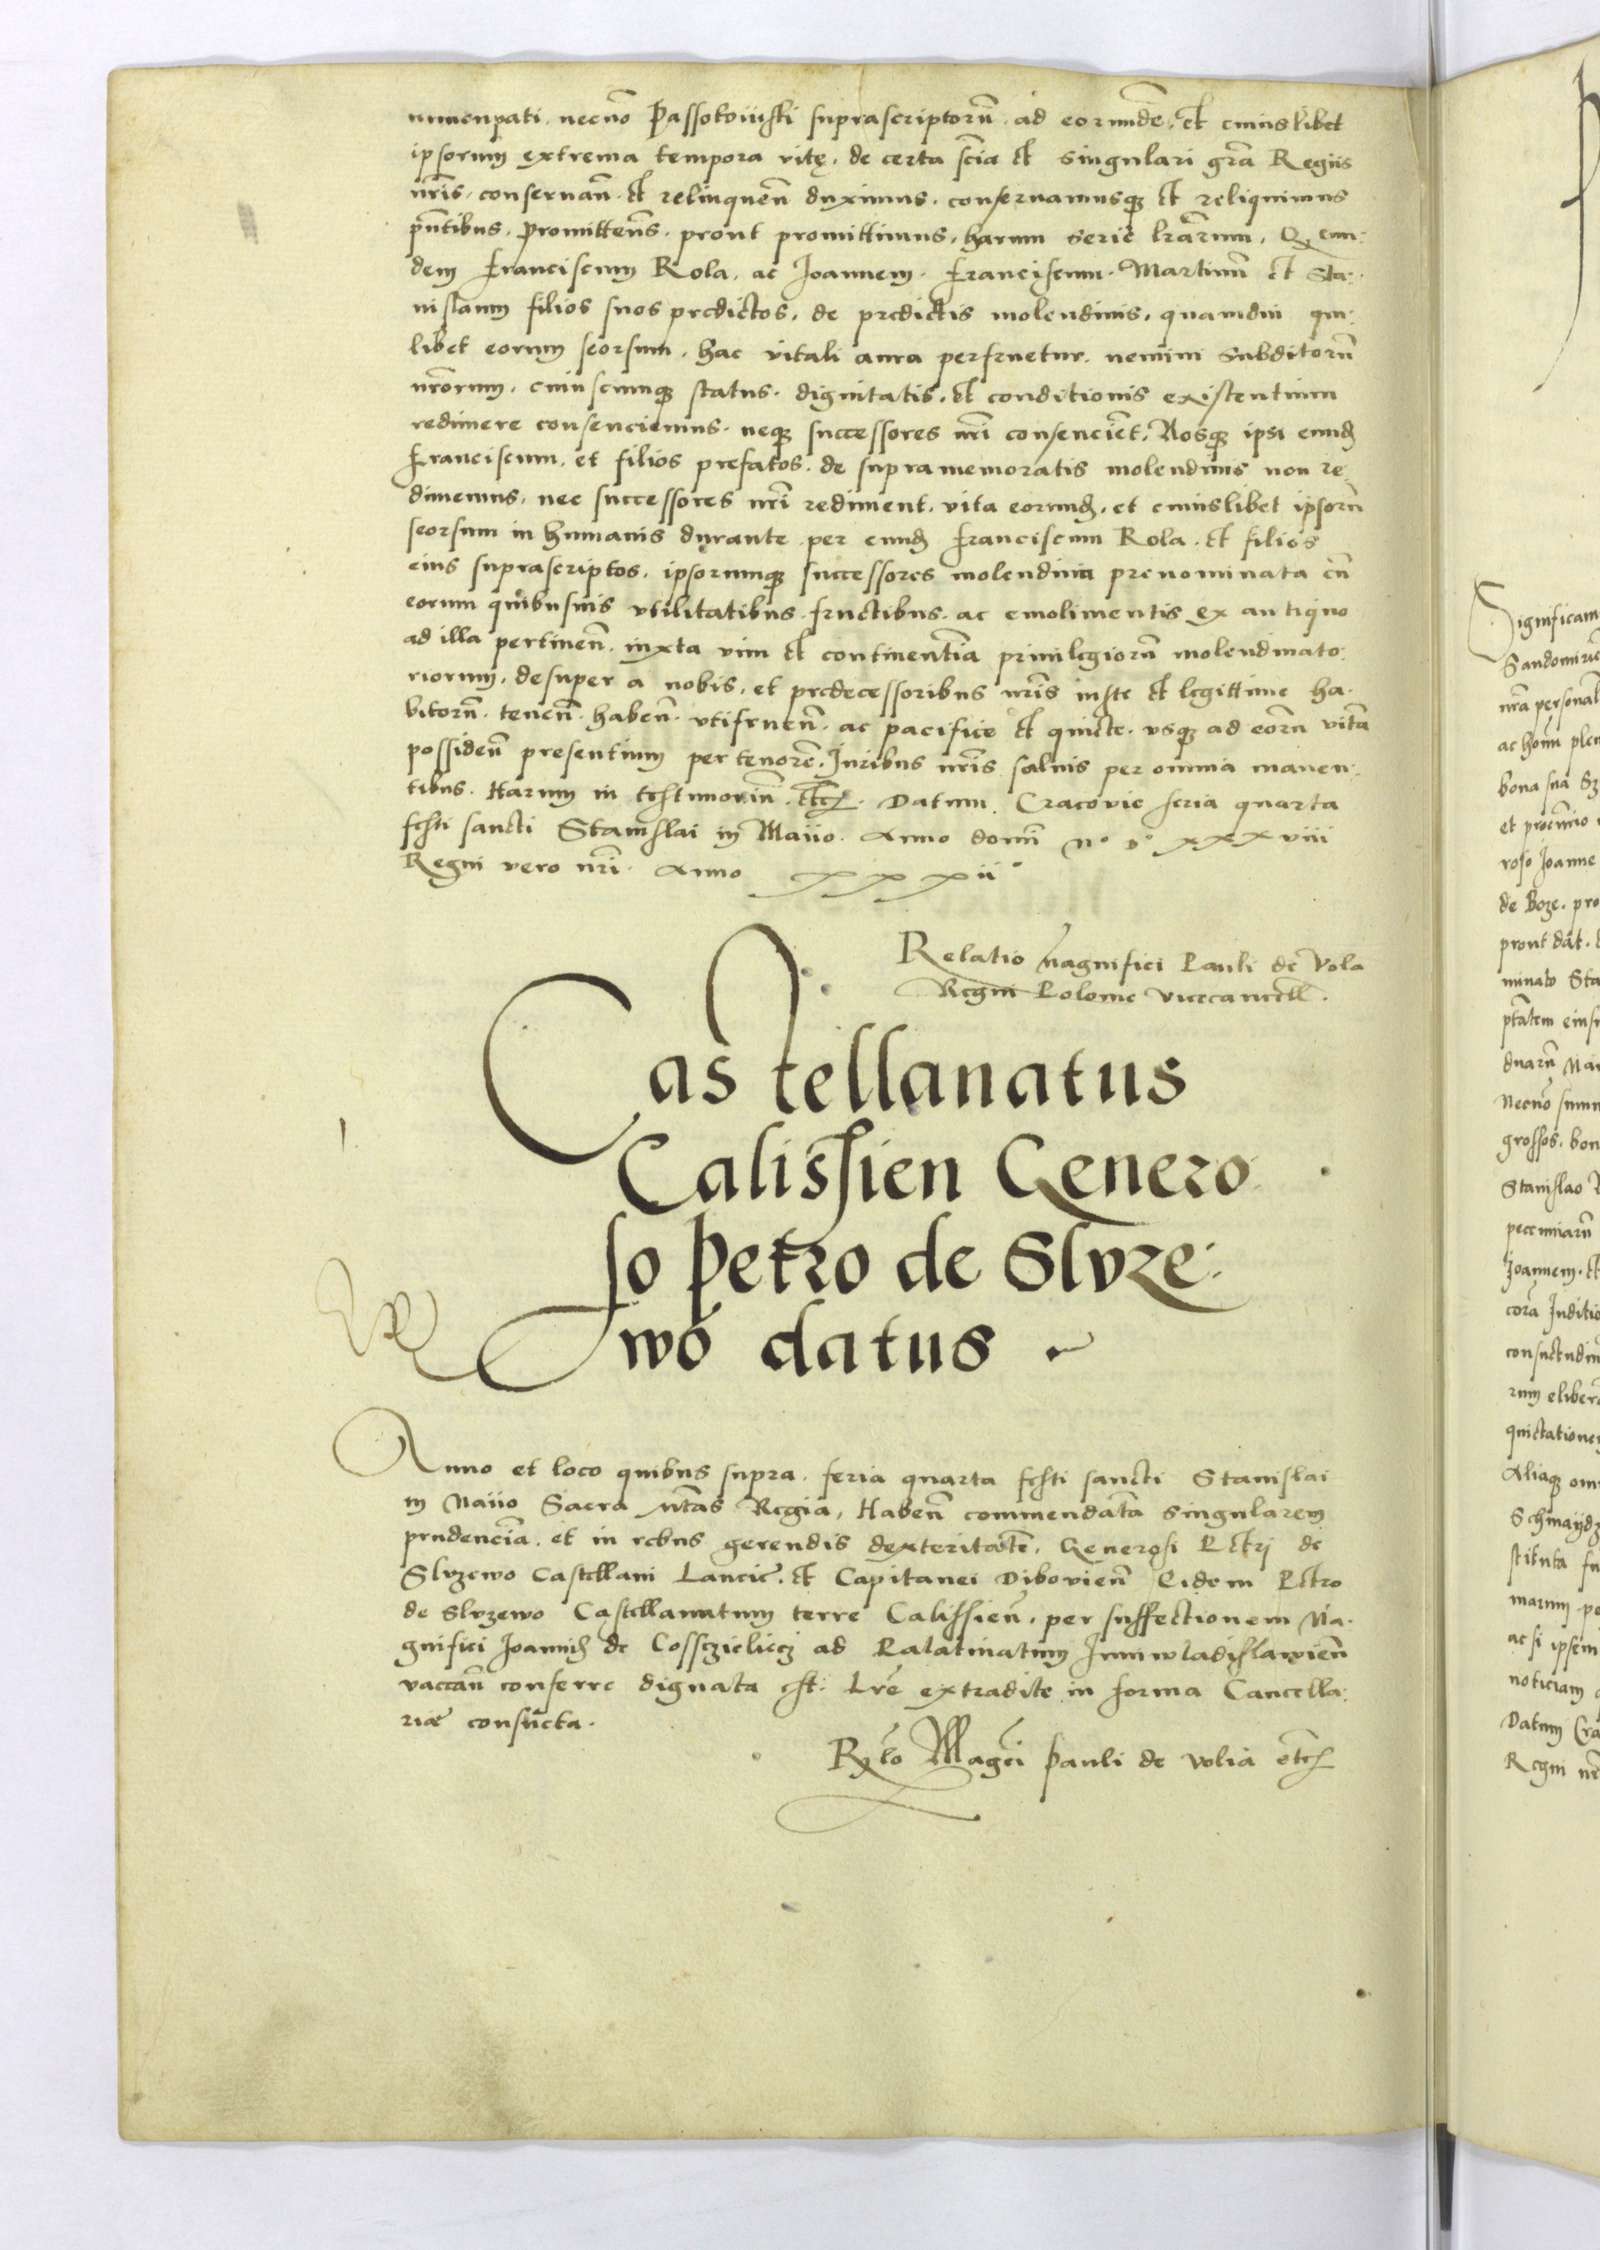 nunenpati. necno Passotowsti suprascriptoru. ad eorunde. et cuiuslibet
ipsorum extrema tempora vitę. de certa scia et singulari gra Regiis
nris. conseruan. et relinquen duximus. conseruamusq et reliquimus
pntibus. Promitten. prout promittimus. harum serie lrarum. Q eun:
dem Franciscum Rola. ac Joannem. Franciscum. Martinu et Sta:
nislaum filios suos predictos. de predictis molendinis. quamdiu qui:
libet eorum seorsum. hac vitali aura perfruetur. nemini Subditoru
nrorum. cuiuscumq status. dignitatis. et conditionis existentium
redimere consenciemus. neq successores nri consencient. Nosq ipsi eund
Franciscum. et filios prefatos. de supramemoratis molendinis non re:
dimemus. nec successores nri rediment. vita eorund. et cuiuslibet ipsoru
seorsum in humanis durante. per eund Franciscum Rola. et filios
eius suprascriptos. ipsorumq successores molendina prenominata cu
eorum quibusuis vtilitatibus. fructibus. ac emolimentis ex antiquo
ad illa pertinen. iuxta vim et continentia priuilegioru molendinato:
riorum. desuper a nobis. et predecessoribus nris iuste et legittime ha:
bitoru. tenen. haben. vtifruen. ac pacifice et quiete. vsq ad eoru vita
possiden presentium per tenore. Juribus nris saluis per omnia manen:
tibus. Harum in testimoniu. etc. Datum Cracovie feria quarta
festi sancti Stanislai in Maiio. Anno domi Mo Do xxxviii
Regni vero nri. Anno xxxii
Relatio Magnifici Pauli de Vola
Regni Polonie vicecancell.
Castellanatus
Calissien Genero
so Petro de Sluze:
wo datus
Anno et loco quibus supra. feria quarta festi sancti Stanislai
in Maiio Sacra Mtas Regia, Haben commendata singularem
prudencia. et in rebus gerendis dexteritate. Generosi Petri de
Sluzewo Castellani Lancic. et Capitanei Dibovien Eidem Petro
de Sluzewo Castellanatum terre Calissien. per suffectionem Ma:
gnifici Joannis de Cossczieliecz ad Palatinatum Junivladislavien
vaccan conferre dignata est. Lre extradite in forma Cancella:
riae consueta.
Rlo Magci Pauli de Volia etc